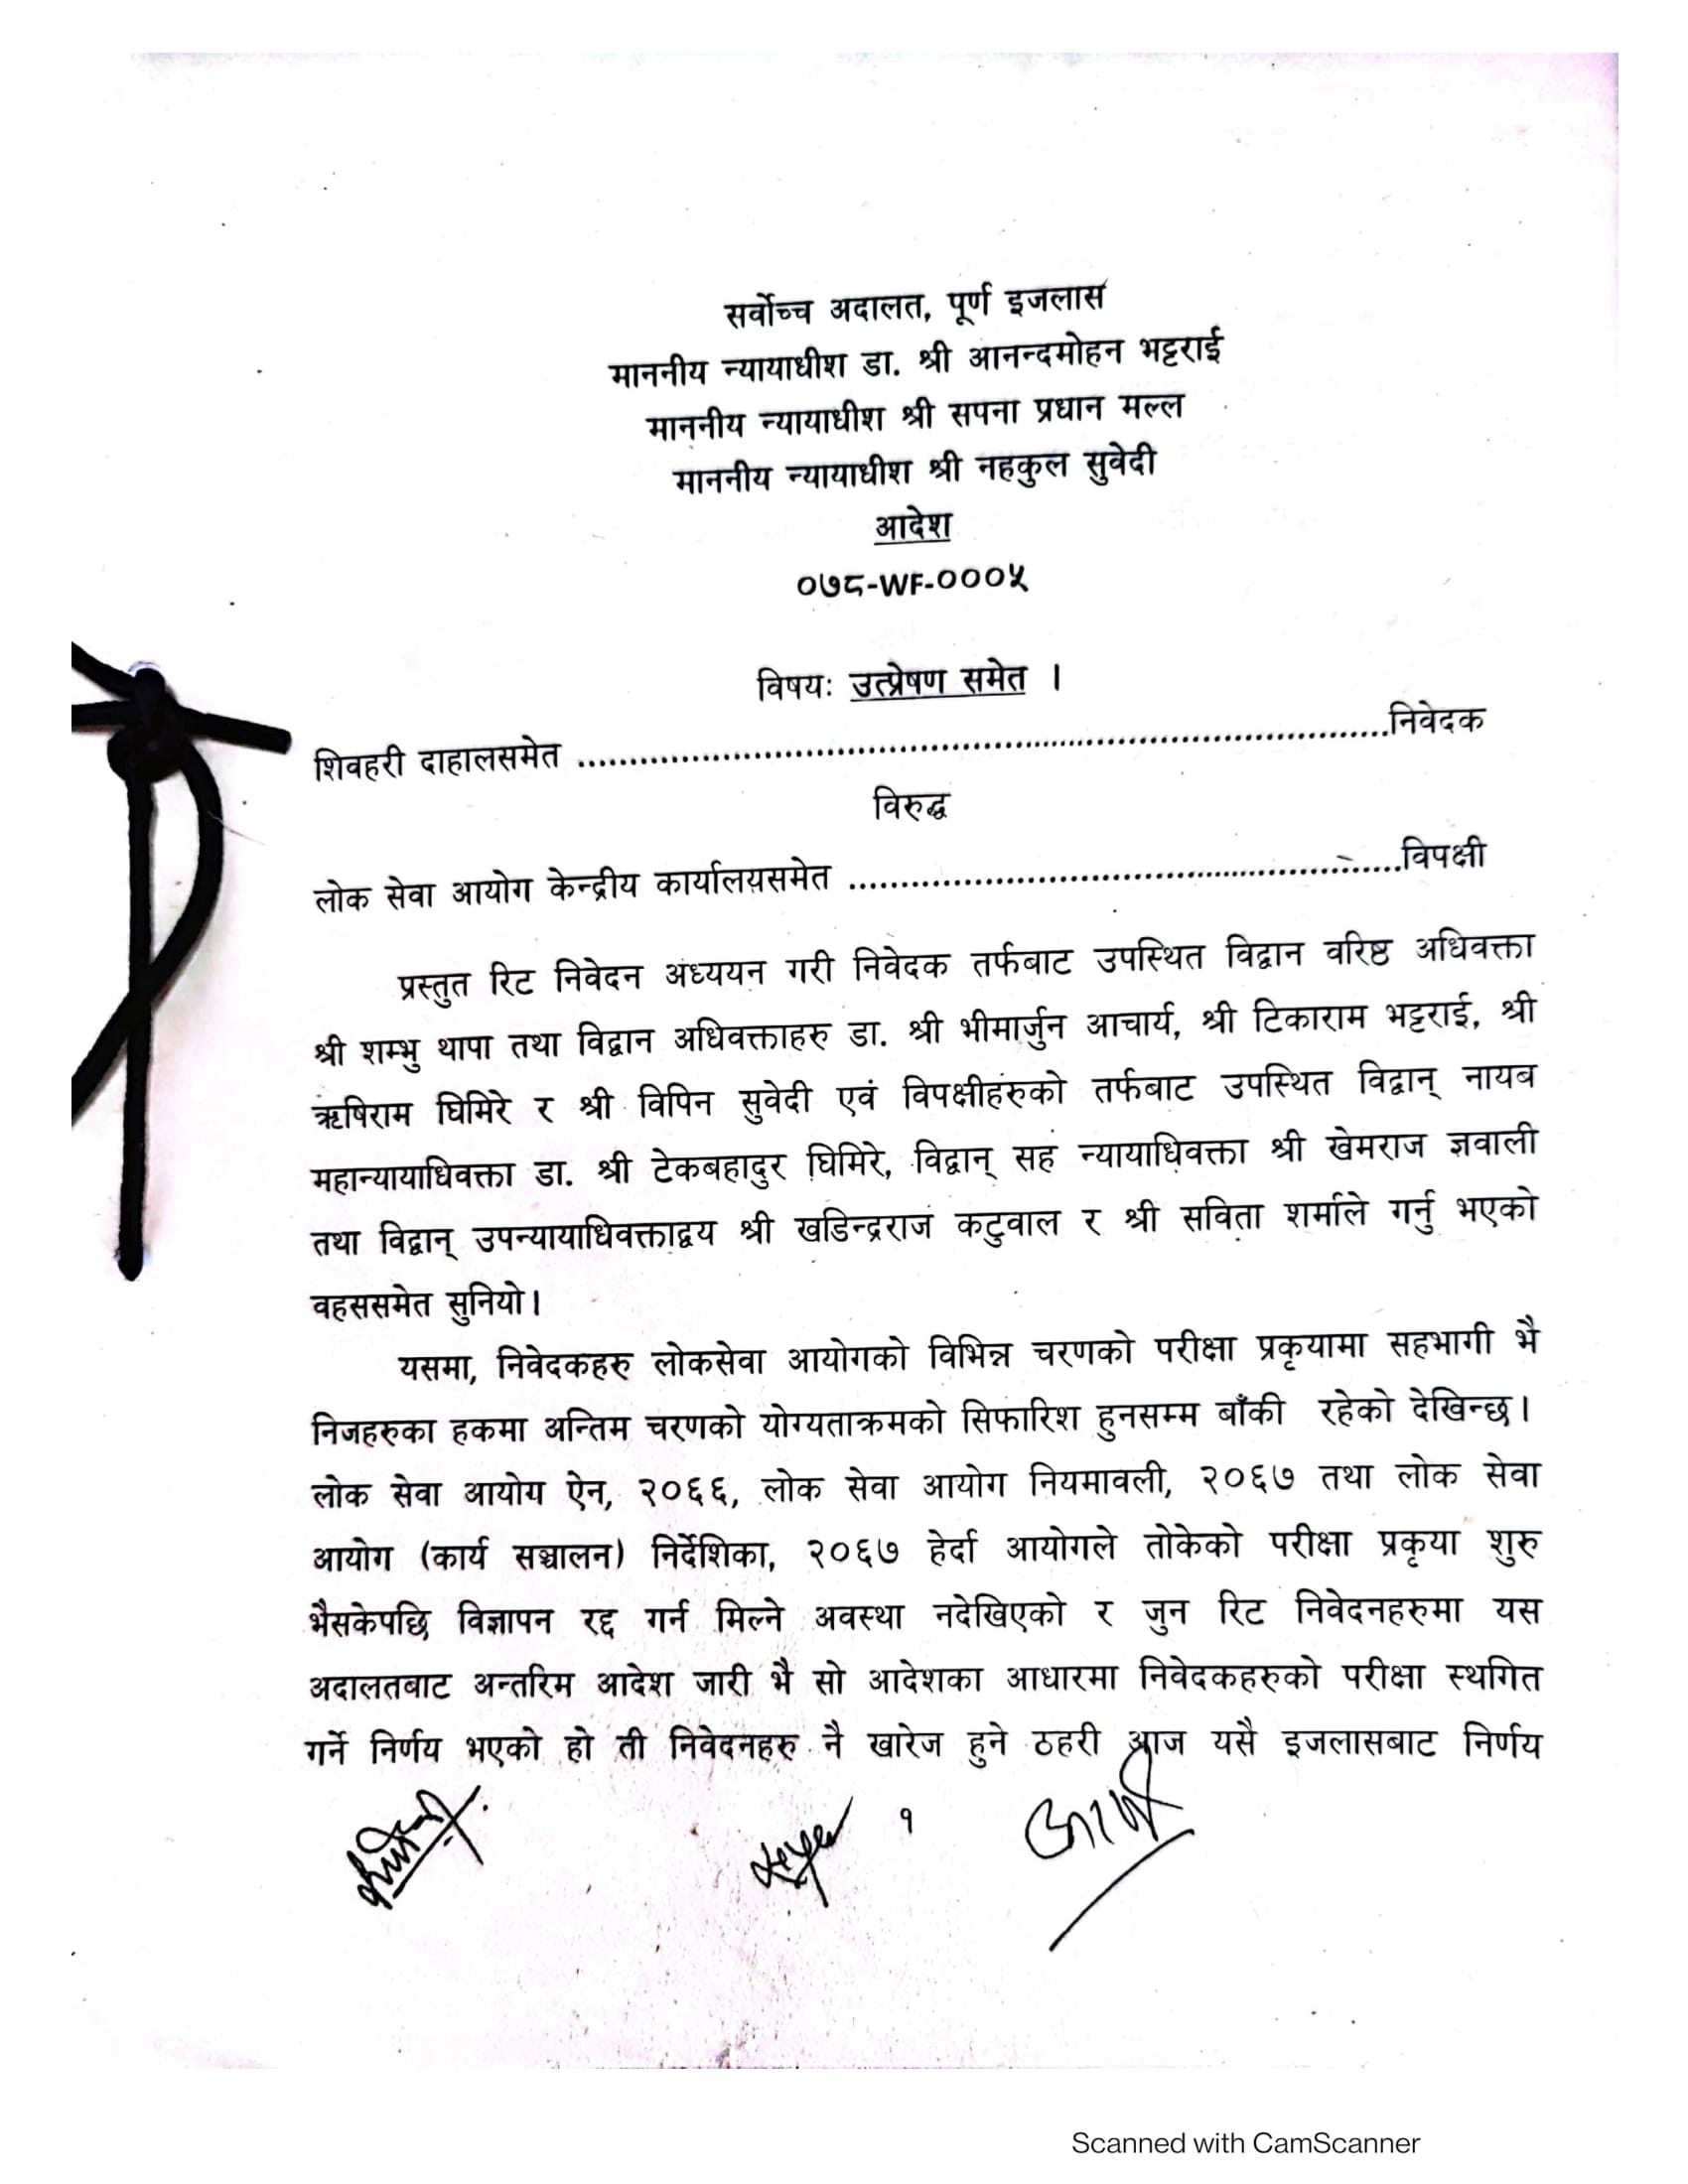 सर्वोच्च अदालत, पूर्ण इजलास
माननीय न्यायाधीश डा. श्री आनन्दमोहन भट्टराई
माननीय न्यायाधीश श्री सपना प्रधान मल्ल
माननीय न्यायाधीश श्री नहकुल सुवेदी
आदेश
०७८-WF-०००५
विषयः उत्प्रेषण समेत ।
शिवहरी दाहालसमेत ........................................................................निवेदक
विरुद्ध
लोक सेवा आयोग केन्द्रीय कार्यालयसमेत ..................................................विपक्षी
प्रस्तुत रिट निवेदन अध्ययन गरी निवेदक तर्फबाट उपस्थित विद्वान वरिष्ठ अधिवक्ता
श्री शम्भु थापा तथा विद्वान अधिवक्ताहरु डा. श्री भीमार्जुन आचार्य, श्री टिकाराम भट्टराई, श्री
ऋषिराम घिमिरे र श्री विपिन सुवेदी एवं विपक्षीहरुको तर्फबाट उपस्थित विद्वान् नायब
महान्यायाधिवक्ता डा. श्री टेकबहादुर घिमिरे, विद्वान् सह न्यायाधिवक्ता श्री खेमराज ज्ञवाली
तथा विद्वान् उपन्यायाधिवक्ताद्वय श्री खडिन्द्रराज कटुवाल र श्री सविता शर्माले गर्नु भएको
वहससमेत सुनियो।
यसमा, निवेदकहरु लोकसेवा आयोगको विभिन्न चरणको परीक्षा प्रकृयामा सहभागी भै
निजहरुका हकमा अन्तिम चरणको योग्यताक्रमको सिफारिश हुनसम्म बाँकी रहेको देखिन्छ।
लोक सेवा आयोग ऐन, २०६६, लोक सेवा आयोग नियमावली, २०६७ तथा लोक सेवा
आयोग (कार्य सञ्चालन) निर्देशिका, २०६७ हेर्दा आयोगले तोकेको परीक्षा प्रकृया शुरु
भैसकेपछि विज्ञापन रद्द गर्न मिल्ने अवस्था नदेखिएको र जुन रिट निवेदनहरुमा यस
अदालतबाट अन्तरिम आदेश जारी भै सो आदेशका आधारमा निवेदकहरुको परीक्षा स्थगित
गर्ने निर्णय भएको हो ती निवेदनहरु नै खारेज हुने ठहरी आज यसै इजलासबाट निर्णय
१
Scanned with CamScanner